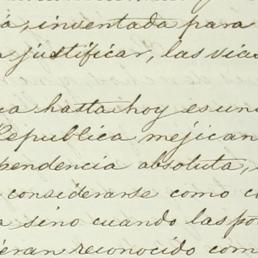 a, inventada para
justificar, las vias
ca hasta hoy es una
Republica mejican
pendencia absoluta,
considerarse como c
a sino cuando las po
eran reconocido com